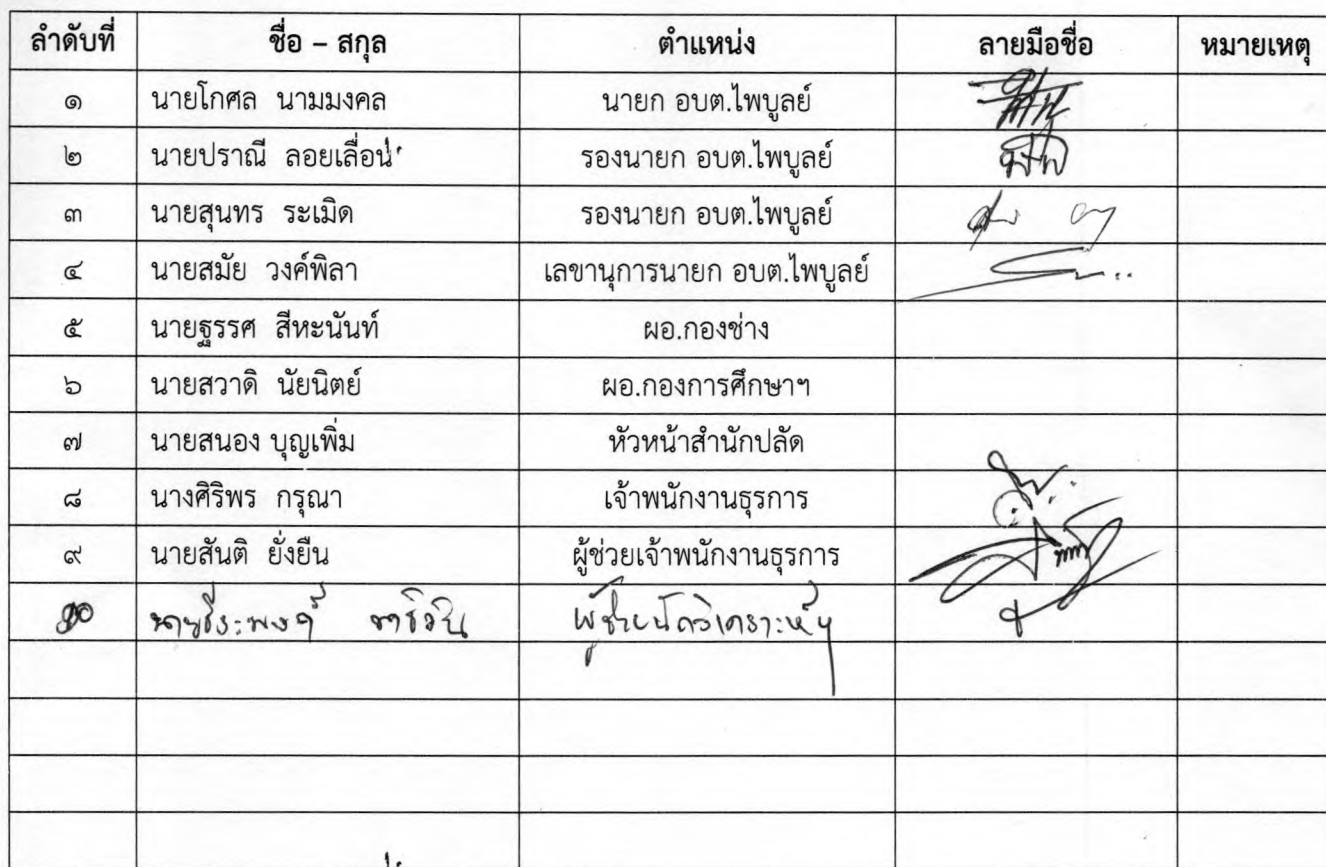 ลำดับที่ ชื่อ – สกุล ตำแหน่ง ลายมือชื่อ หมายเหตุ
๑ นายโกศล นามมงคล นายก อบต.ไพบูลย์
๒ นายปราณี ลอยเลื่อน รองนายก อบต.ไพบูลย์
๓ นายสุนทร ระเมิด รองนายก อบต.ไพบูลย์
๔ นายสมัย วงค์พิลา เลขานุการนายก อบต.ไพบูลย์
๕ นายฐรรศ สีหะนันท์ ผอ.กองช่าง
๖ นายสวาดิ นัยนิตย์ ผอ.กองการศึกษาฯ
๗ นายสนอง บุญเพิ่ม หัวหน้าสำนักปลัด
๘ นางศิริพร กรุณา เจ้าพนักงานธุรการ
๙ นายสันติ ยั่งยืน ผู้ช่วยเจ้าพนักงานธุรการ
๑๐ ผู้ช่วยนักวิเคราะห์ฯ